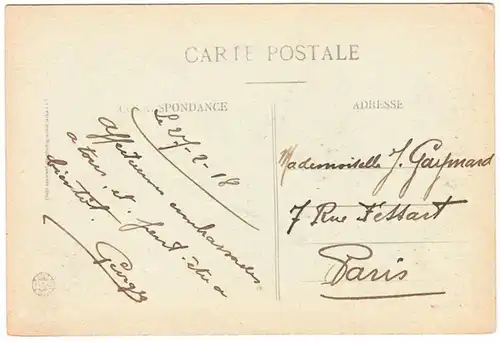 CARTE POSTALE
CORRESPONDANCE
ADRESSE
Le 27-2-18
Affectueux embrassades
a tous, et peut être a
bientôt.
Mademoiselle J. Gaymard
7 Rue Fessart
Paris